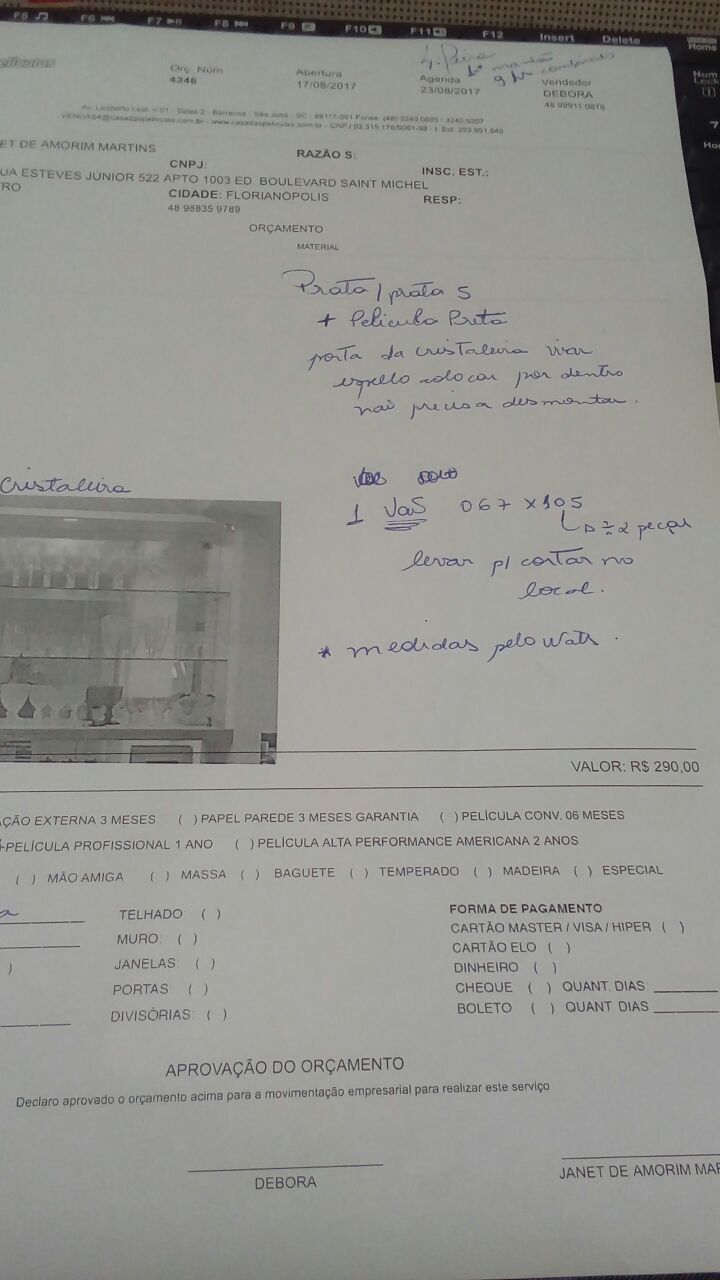 F5 F6 F7 F8 F9 F10 F11 F12 Insert Delete
Home
Num
Lock
7
4-Feira
1º manhã
9 hr combinado
Orç. Num Abertura Agenda Vendedor
4346 17/08/2017 23/08/2017 DEBORA
48 99911 0876
Barreiros - São José - SC - 88117-001 Fones: (48) 3240.0685 / 3240.9207
ET DE AMORIM MARTINS RAZÃO S:
CNPJ: INSC. EST.:
UA ESTEVES JUNIOR 522 APTO 1003 ED. BOULEVARD SAINT MICHEL
TRO CIDADE: FLORIANÓPOLIS RESP:
48 98835 9789
ORÇAMENTO
MATERIAL
Prata / prata 5
+ Pelicula Preta
porta da cristaleira virar
espelho colocar por dentro
não precisa desmontar.
Cristaleira
1 Vas 067 x 105
2 peças
levar p/ cortar no
local.
* medidas pelo Wats.
VALOR: R$ 290,00
AÇÃO EXTERNA 3 MESES ( ) PAPEL PAREDE 3 MESES GARANTIA ( ) PELÍCULA CONV. 06 MESES
PELÍCULA PROFISSIONAL 1 ANO ( ) PELÍCULA ALTA PERFORMANCE AMERICANA 2 ANOS
( ) MÃO AMIGA ( ) MASSA ( ) BAGUETE ( ) TEMPERADO ( ) MADEIRA ( ) ESPECIAL
TELHADO: ( )
MURO: ( )
JANELAS: ( )
PORTAS ( )
DIVISÓRIAS: ( )
FORMA DE PAGAMENTO
CARTÃO MASTER / VISA / HIPER ( )
CARTÃO ELO ( )
DINHEIRO ( )
CHEQUE ( ) QUANT. DIAS
BOLETO ( ) QUANT. DIAS
APROVAÇÃO DO ORÇAMENTO
Declaro aprovado o orçamento acima para a movimentação empresarial para realizar este serviço
DEBORA JANET DE AMORIM MAR